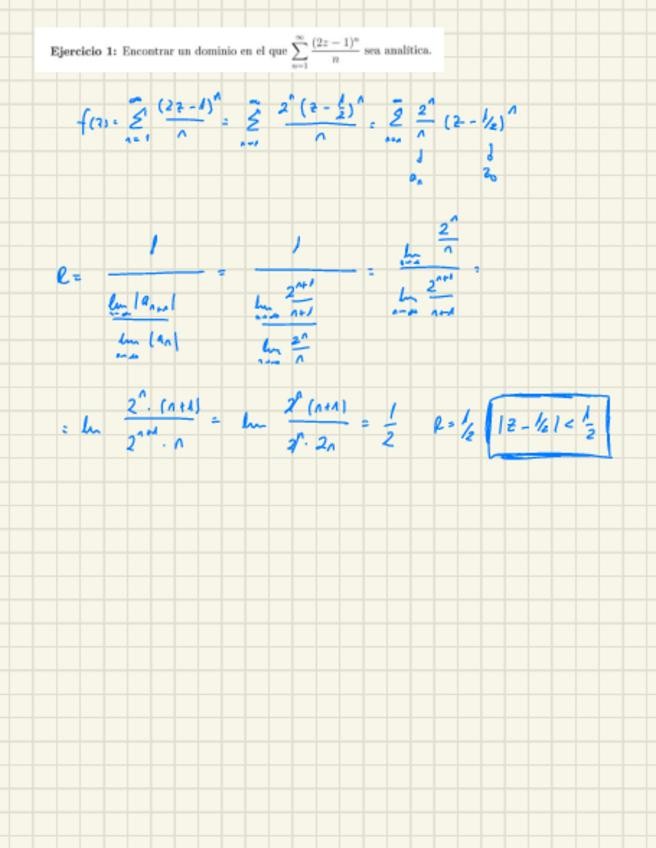 Ejercicio 1: Encontrar un dominio en el que \sum_{n=1}^{\infty} \frac{(2z-1)^n}{n} sea analítica.
f(z) = \sum_{n=1}^{\infty} \frac{(2z-1)^n}{n} = \sum_{n=1}^{\infty} \frac{2^n (z-\frac{1}{2})^n}{n} = \sum_{n=1}^{\infty} \frac{2^n}{n} (z-1/2)^n
↓ ↓
a_n z_0
R = \frac{1}{\frac{\lim_{n\to\infty} |a_{n+1}|}{\lim_{n\to\infty} |a_n|}} = \frac{1}{\frac{\lim_{n\to\infty} \frac{2^{n+1}}{n+1}}{\lim_{n\to\infty} \frac{2^n}{n}}} = \frac{\lim_{n\to\infty} \frac{2^n}{n}}{\lim_{n\to\infty} \frac{2^{n+1}}{n+1}} =
= \lim \frac{2^n \cdot (n+1)}{2^{n+1} \cdot n} = \lim \frac{2^n (n+1)}{2^n \cdot 2n} = \frac{1}{2} R = 1/2 |z-1/2| < \frac{1}{2}